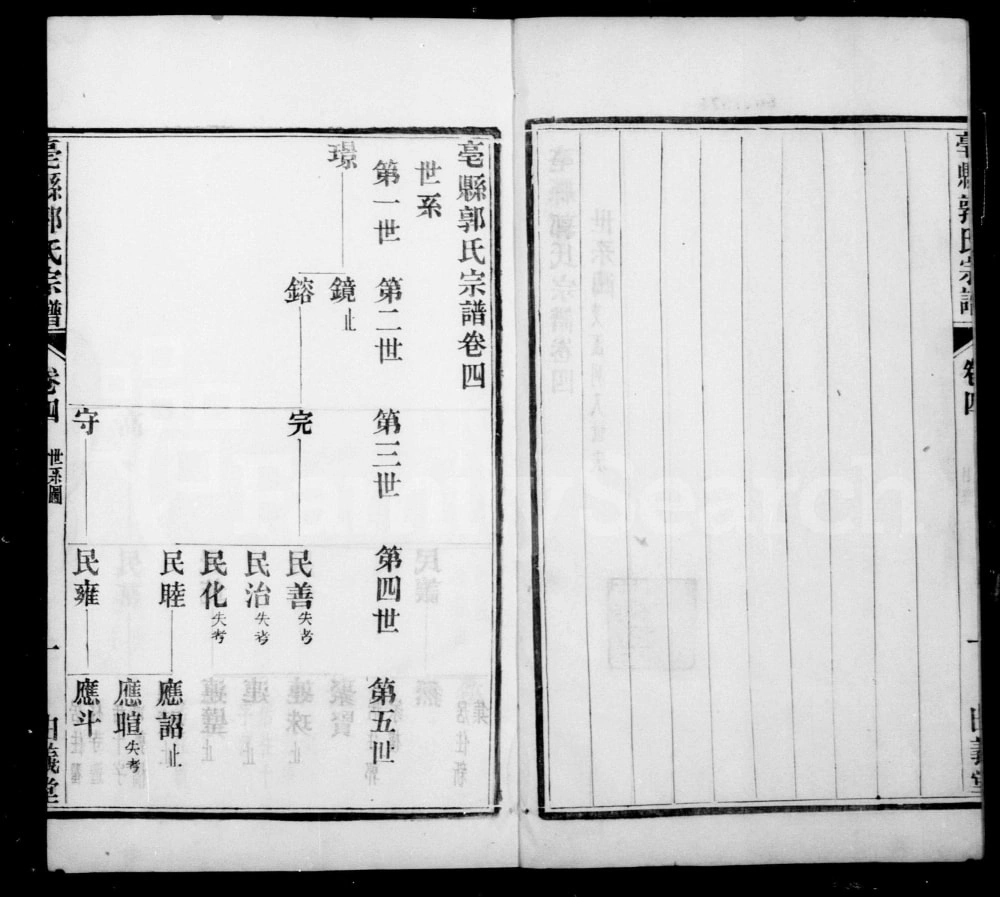 亳縣郭氏宗譜
卷四
一
亳縣郭氏宗譜卷四
世系
第一世
第二世
第三世
第四世
第五世
璟
鏡止
鎔
完
守
民善失考
民治失考
民化失考
民睦
民雍
應詔止
應暄失考
應斗
亳縣郭氏宗譜
卷四
世系圖
一
FamilySearch